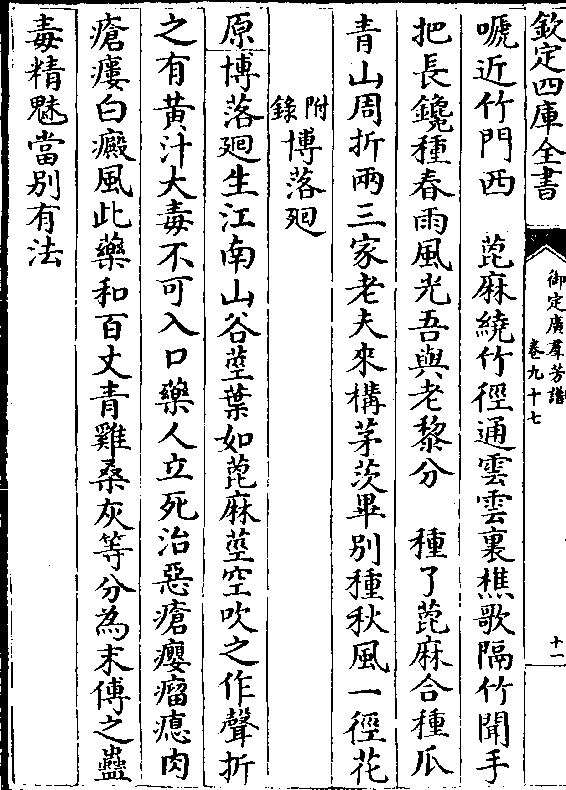 欽定四庫全書
御定廣羣芳譜
卷九十七
十一
嗁近竹門西　萞麻繞竹徑通雲雲裏樵歌隔竹聞手
把長鑱種春雨風光吾與老黎分　種了萞麻合種瓜
青山周折兩三家老夫來構茅茨畢別種秋風一徑花
附錄博落廻
原博落廻生江南山谷莖葉如萞麻莖空吹之作聲折
之有黃汁大毒不可入口藥人立死治惡瘡癭瘤瘜肉
瘡瘻白癜風此藥和百丈青雞桑灰等分為末傅之蠱
毒精魅當別有法